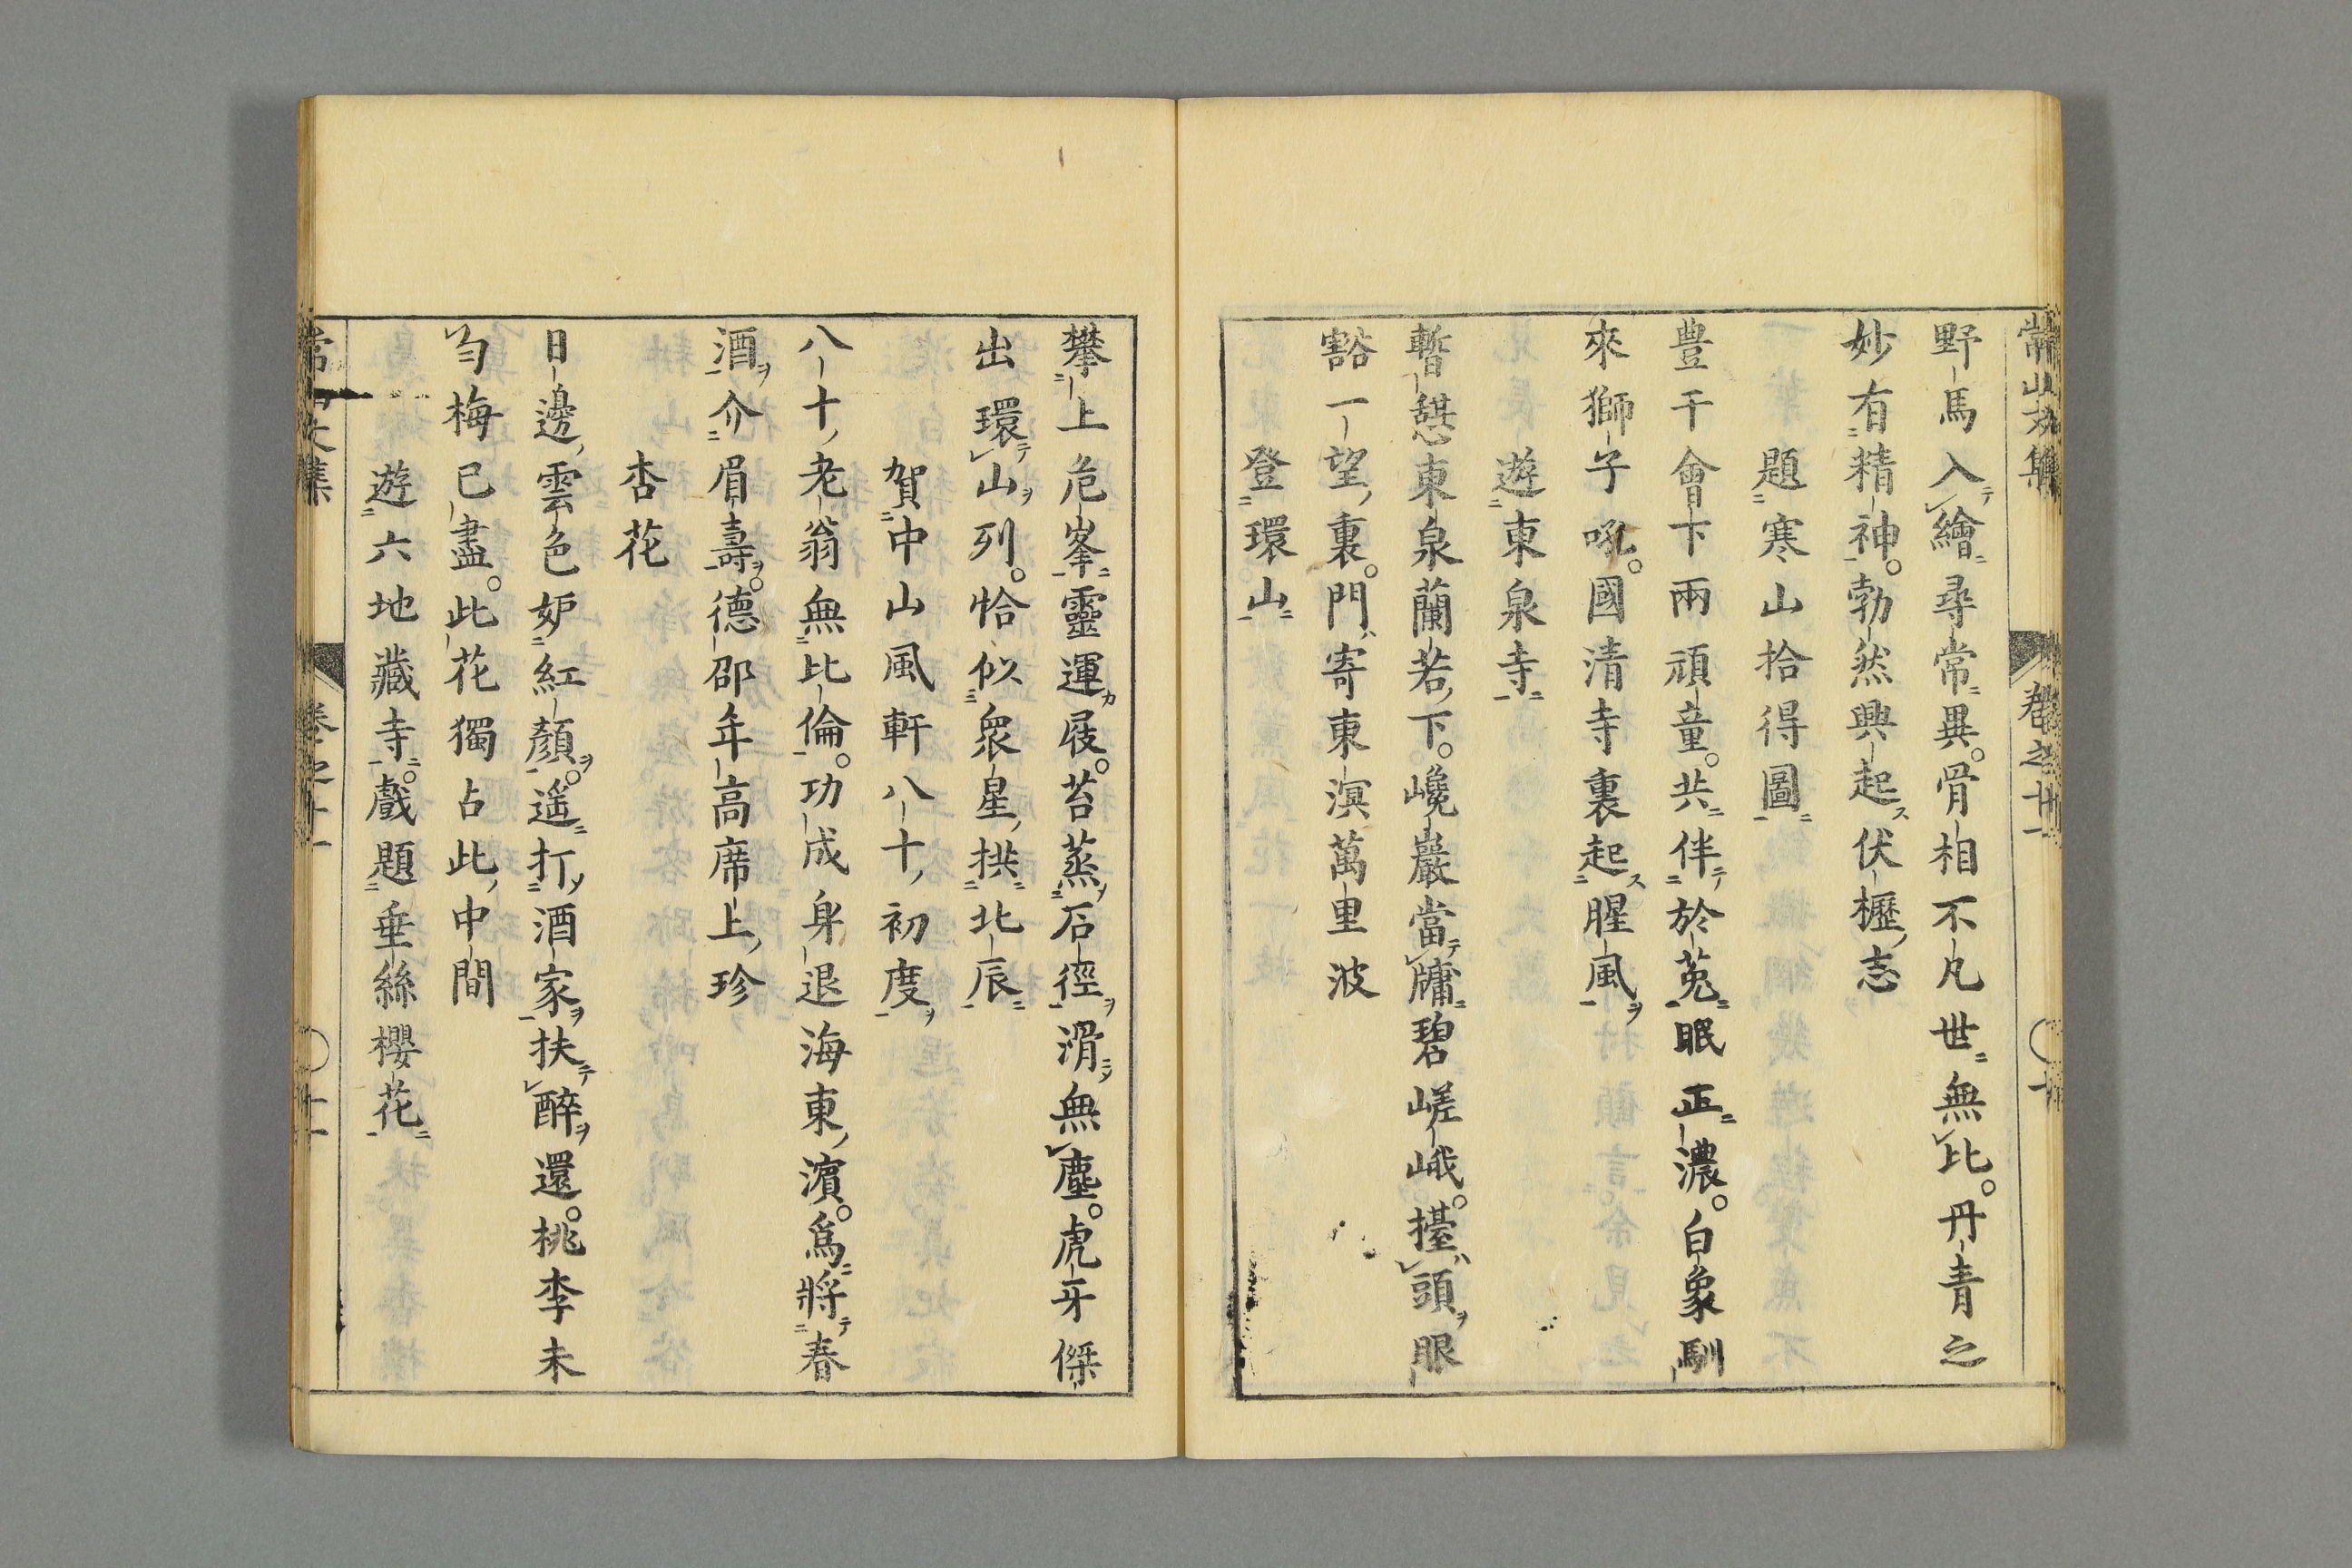 常山文集 卷之十一 〇十
野馬入繪尋常異。骨相不凡世無比。丹青之
妙有精神。勃然興起伏櫪志
題寒山拾得圖
豊干會下兩頑童。共伴於菟眠正濃。白象馴
來獅子吼。國清寺裏起腥風
遊東泉寺
暫憇東泉蘭若下。巉巖當牖碧嵯峨。擡頭眼
豁一望裏。門寄東溟萬里波
登環山
攀上危峯靈運屐。苔蒸石徑滑無塵。虎牙傑
出環山列。恰似衆星拱北辰
賀中山風軒八十初度
八十老翁無比倫。功成身退海東濵。爲將春
酒介眉壽。德卲年高席上珍
杏花
日邊雲色妒紅顏。遥打酒家扶醉還。桃李未
匀梅已盡。此花獨占此中間
遊六地藏寺。戲題垂絲櫻花
常山文集 卷之十一 〇十一